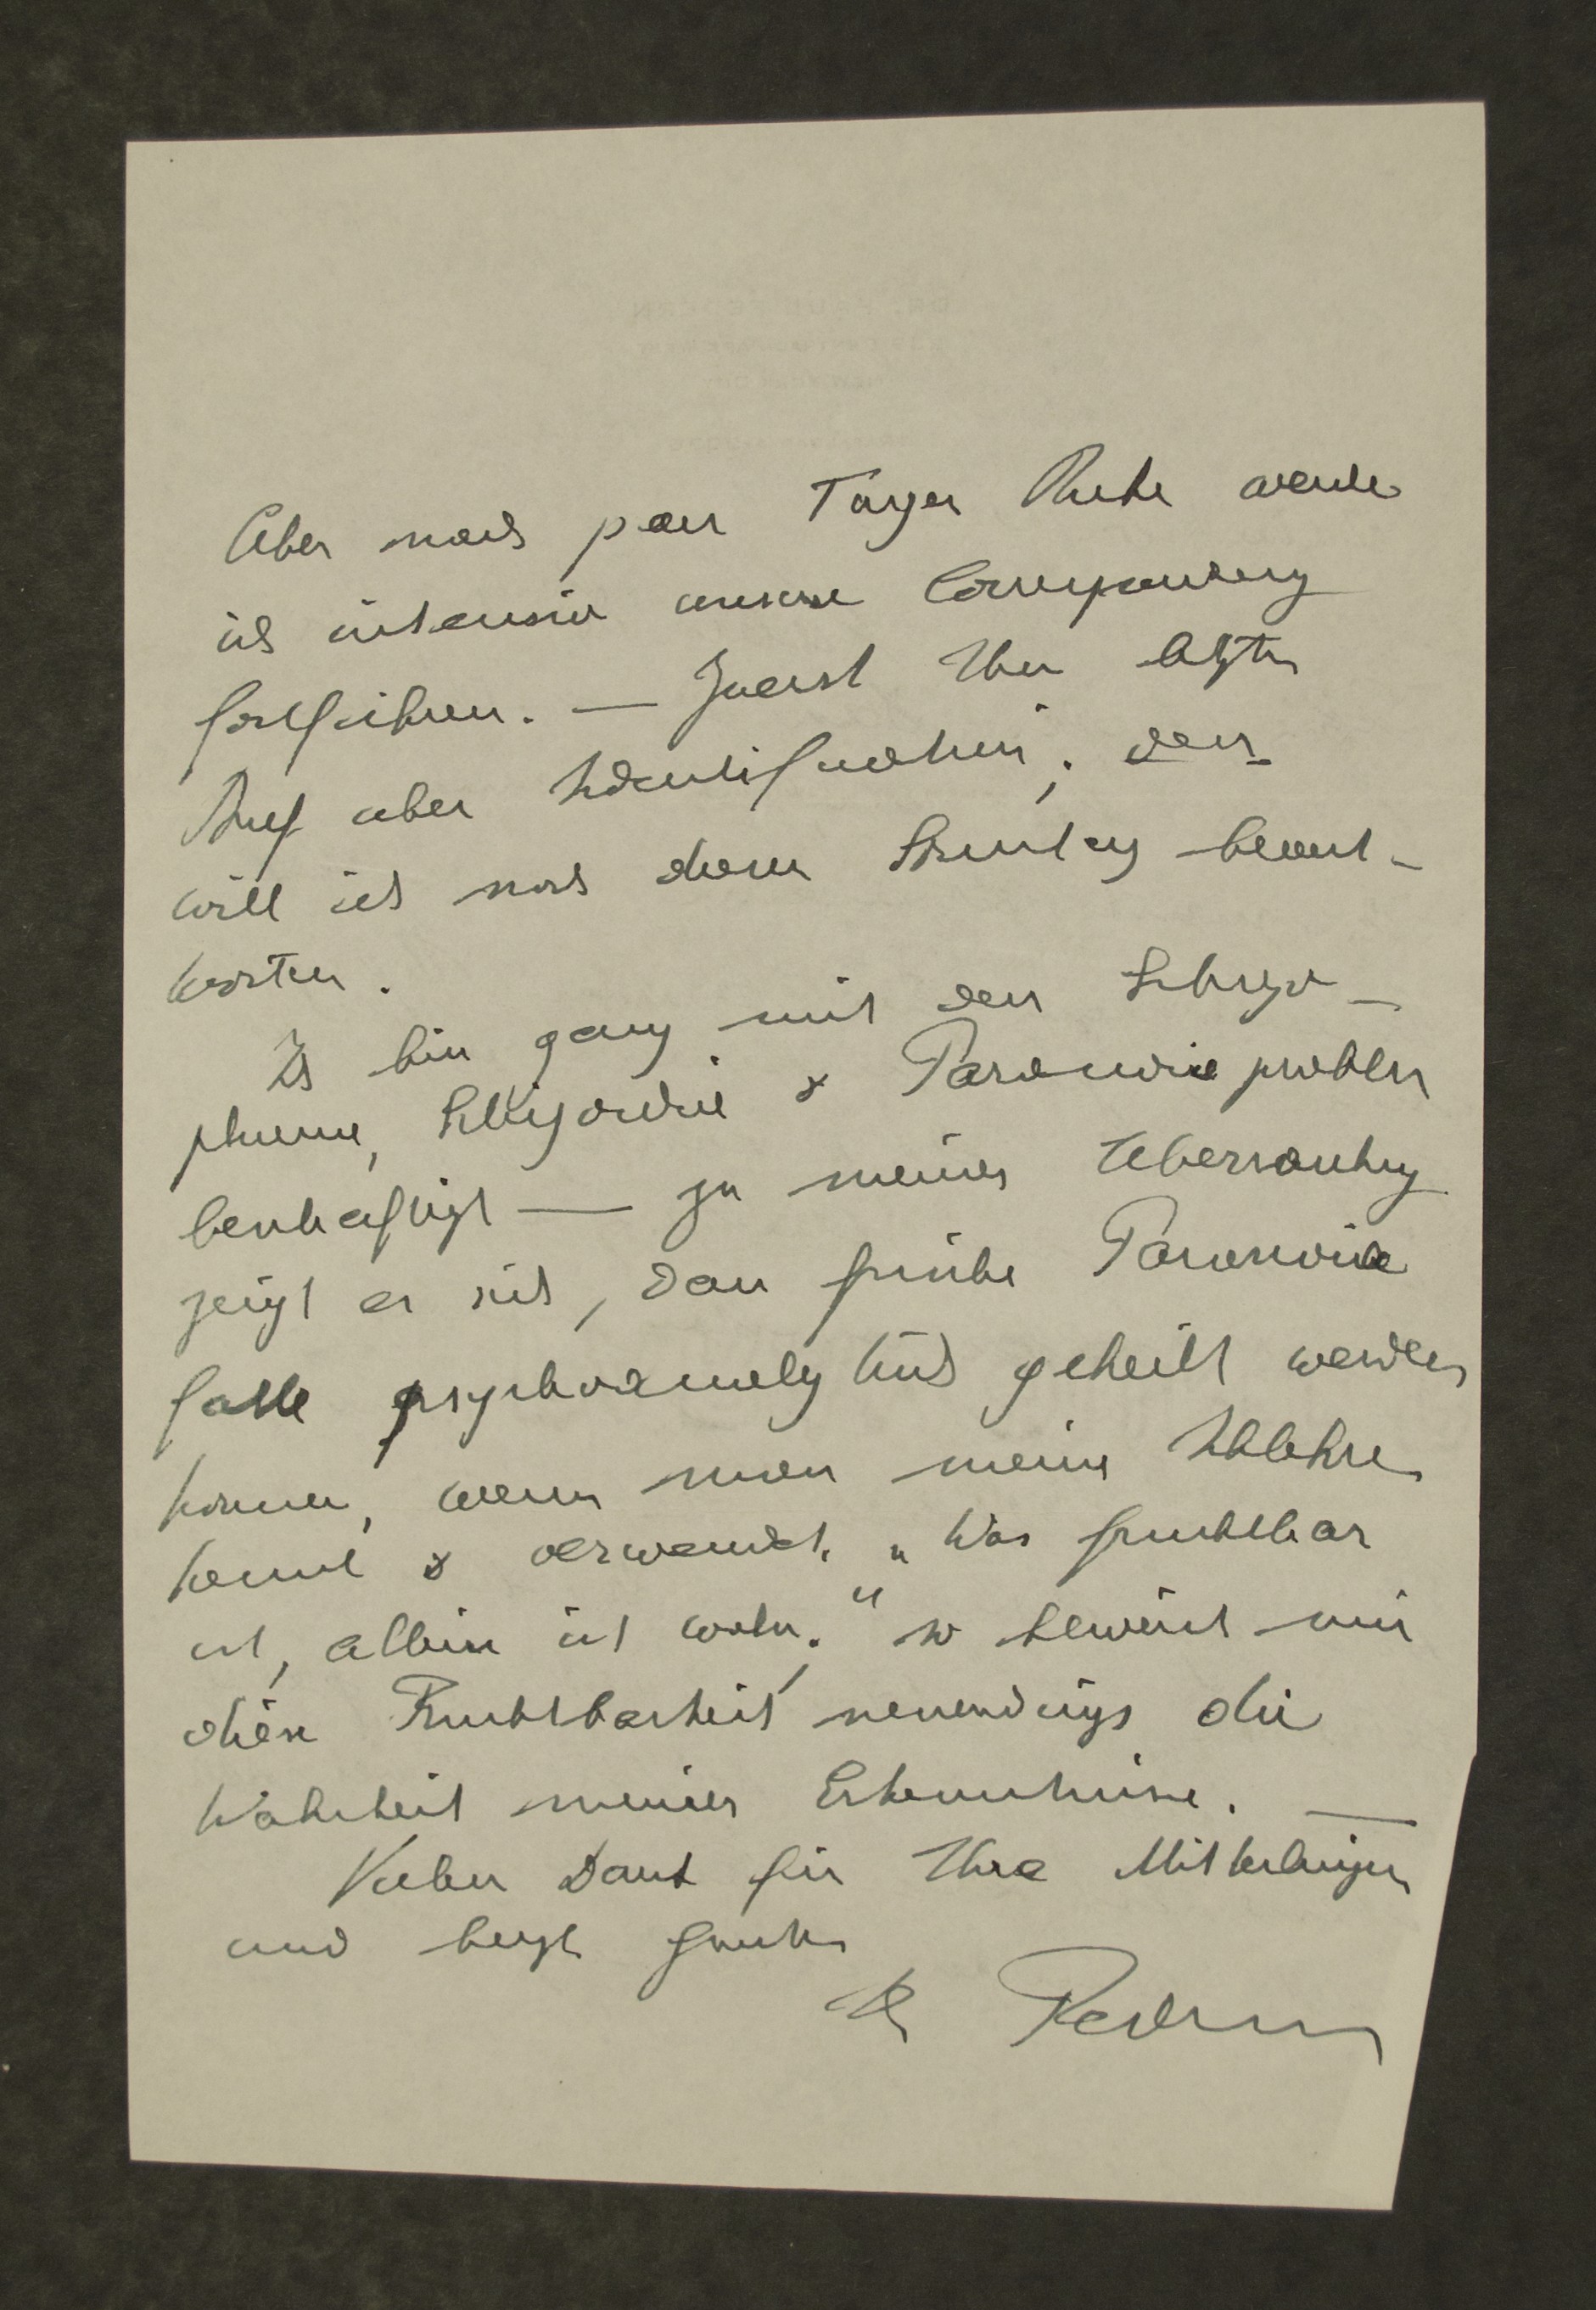 Aber nach paar Tagen Ruhe werde
ich intensiv unsere Correspondenz
fortführen. — Zuerst Ihren letzten
Brief über Identification; den
will ich noch diesen Sonntag beant-
worten.
Ich bin ganz mit den Schizo-
phrenie, & Paranoia problem
beschäftigt — zu meiner Überraschung
zeigt es sich, dass frühe Paranoia
fälle psychoanalytisch geheilt werden
können, wenn man meine Ichlehre
kennt & verwendet. „Was fruchtbar
ist, allein ist wahr." so beweist mir
diese Fruchtbarkeit neuerdings die
Wahrheit meiner Erkenntnisse. —
Vielen Dank für Ihre Mitteilungen
und herzl Grüße
Ihr Federn